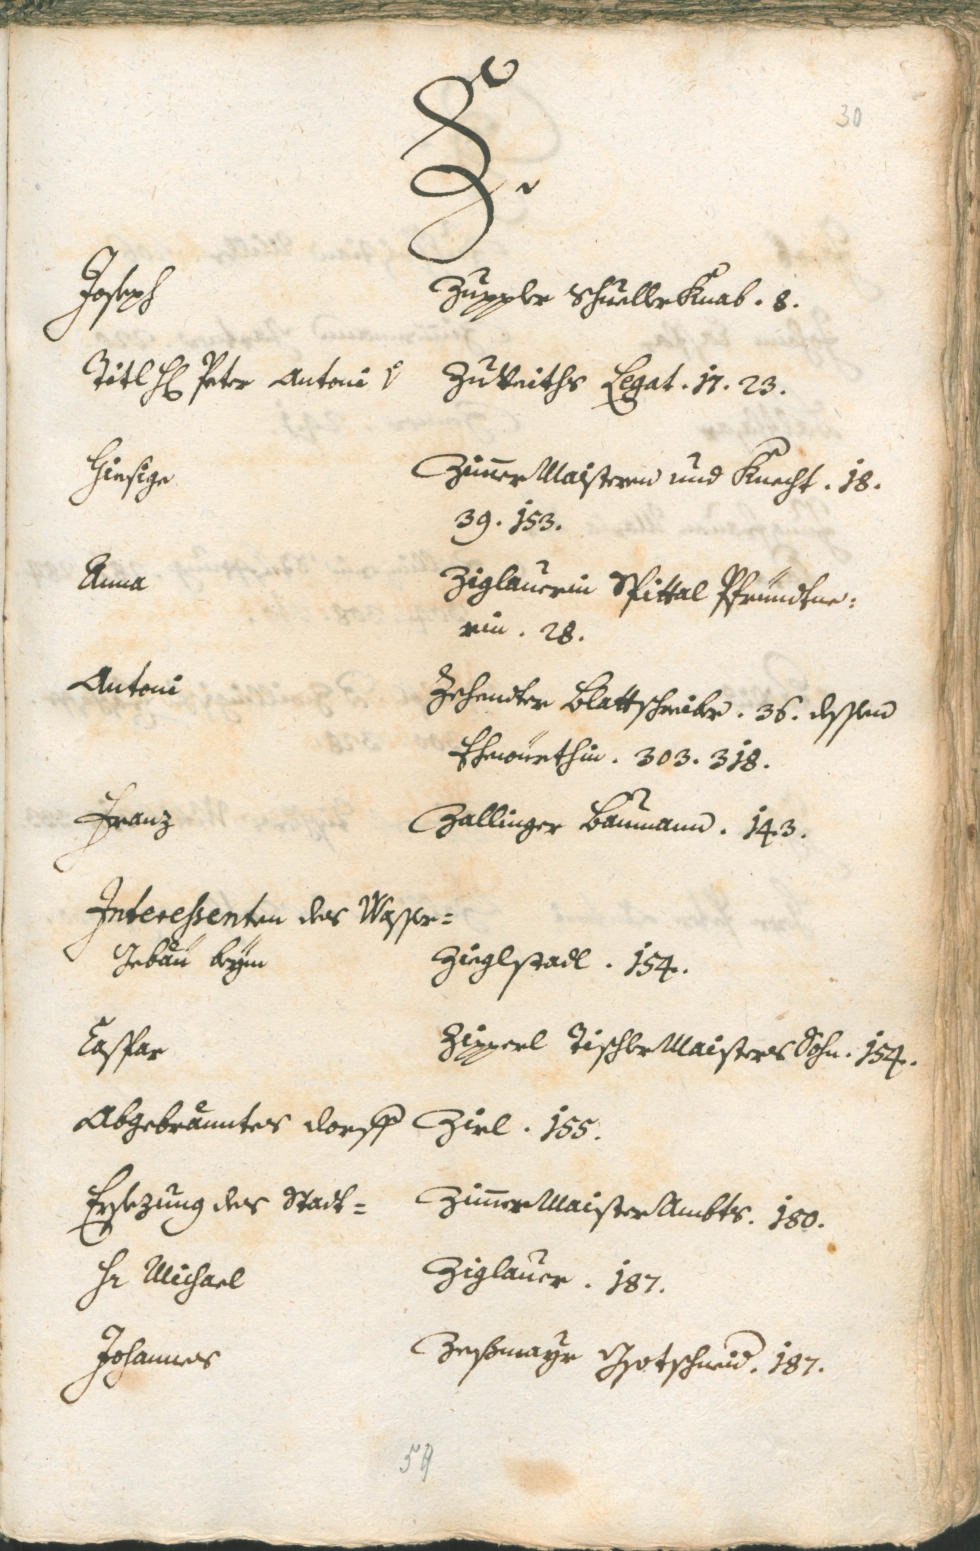 Z.
30
Joseph Zuppler Schueller Knab. 8.
Titl H Peter Antoni Zu Veiths Legat. 17. 23.
Hiesige Zim̄er Maistern und Knecht. 18.
39. 153.
Anna Ziglauerin Spittal Pfründtne:
rin. 28.
Antoni Zehendter Blattschreiber. 36. dessen
Ehewürthin. 303. 318.
Franz Zallinger Baumann. 143.
Interessenten des Wasser=
Gebäu beÿm Zieglstadl. 154.
Caspar Zipperl Tischler Maisters Sohn. 154.
Abgebranntes dorff Zirl. 155.
Ersezung des Stadt= Zim̄er Maister Ambts. 180.
Hr Michael Ziglauer. 187.
Johannes Zessmaÿr 187.
59